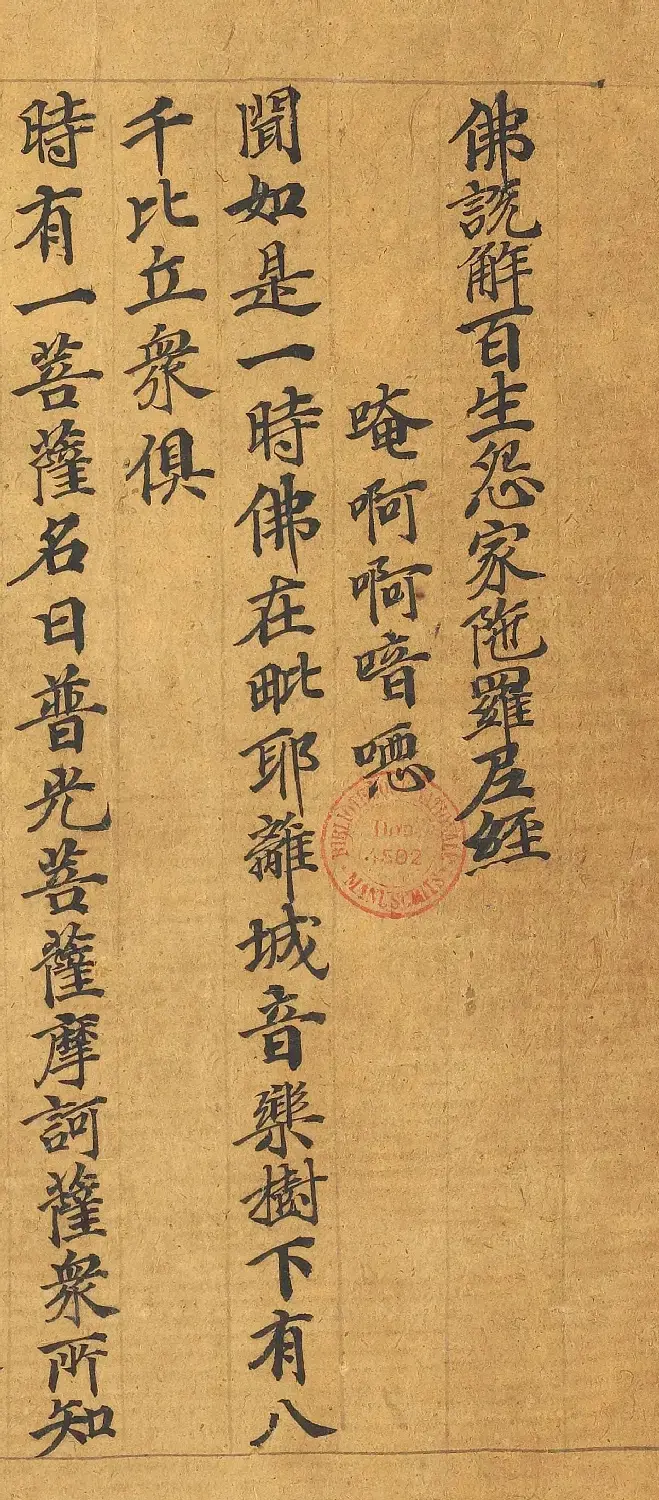 佛說解百生怨家陁羅尼經
唵啊啊暗噁
聞如是一時佛在毗耶離城音樂樹下有八
千比丘衆俱
時有一菩薩名曰普光菩薩摩訶薩衆所知
BIBLIOTHÈQUE NATIONALE
Don
4502
MANUSCRITS